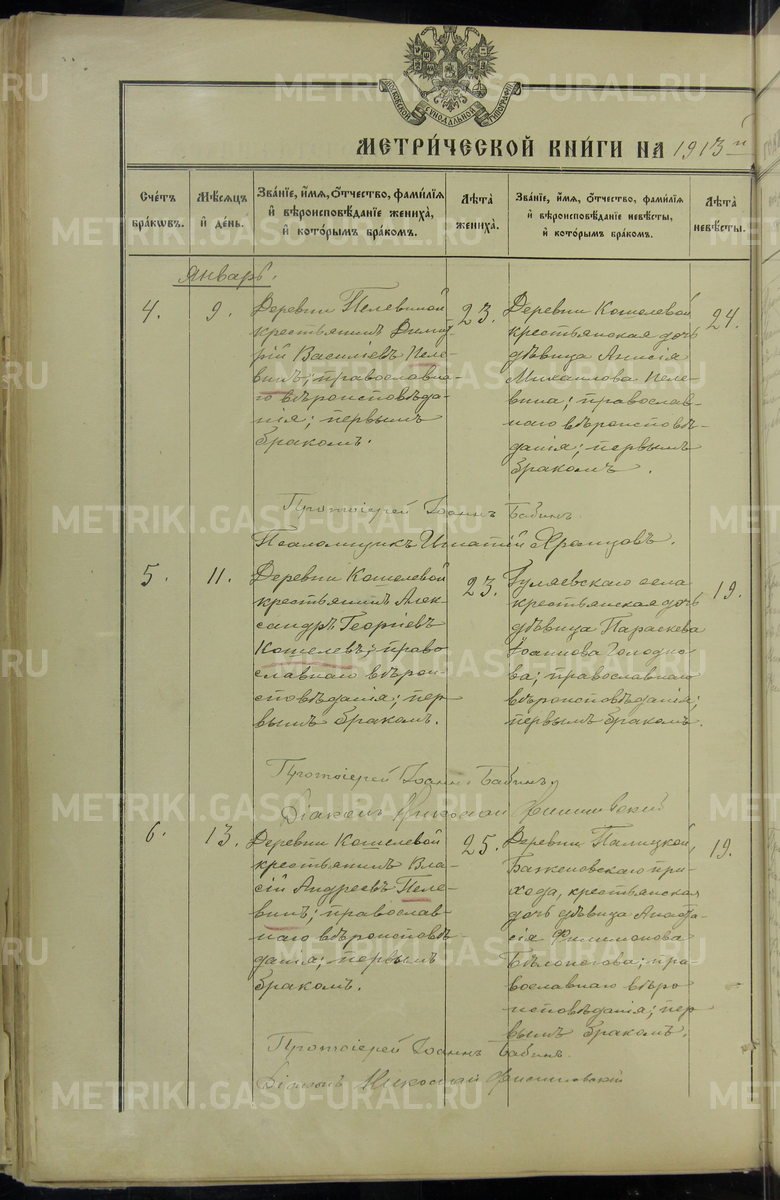 МОСКОВСКОЙ СѴНОДАЛЬНОЙ ТИПОГРАФІИ
МЕТРИ́ЧЕСКОЙ КНИ́ГИ НА 1913й
Сче́тъ бра́кѡвъ.
Мѣ́сѧцъ и҆ де́нь.
Зва́нїе, и҆́мѧ, ѻ҆́тчество, фами́лїѧ и҆ вѣроисповѣ́данїе жениха̀, и҆ кото́рымъ бра́комъ.
Лѣ́та жениха̀.
Зва́нїе, и҆́мѧ, ѻ҆́тчество, фами́лїѧ и҆ вѣроисповѣ́данїе невѣ́сты, и҆ кото́рымъ бра́комъ.
Лѣ́та невѣ́сты.
Январь.
4.
9.
Деревни Пелевиной
крестьянинъ Димит-
рій Василіевъ Пеле-
винъ; православна-
го вѣроисповѣда-
нія; первымъ
бракомъ.
23.
Деревни Кошелевой
крестьянская дочь
дѣвица Анисія
Михаилова Пеле-
вина; православ-
наго вѣроисповѣ-
данія; первымъ
бракомъ.
24.
Протоіерей Іоаннъ Бабинъ
Псаломщикъ Игнатій Аранцовъ.
5.
11.
Деревни Кошелевой
крестьянинъ Алек-
сандръ Георгіевъ
Кошелевъ; право-
славнаго вѣрои-
сповѣданія; пер-
вымъ бракомъ.
23.
Гуляевскаго села
крестьянская дочь
дѣвица Параскева
Іоаннова Голодно-
ва; православнаго
вѣроисповѣданія;
первымъ бракомъ.
19.
Протоіерей Іоаннъ Бабинъ
Діаконъ Николай
6.
13.
Деревни Кошелевой
крестьянинъ Вла-
сій Андреевъ Пеле-
винъ; православ-
наго вѣроисповѣ-
данія; первымъ
бракомъ.
25.
Деревни Палицкой,
Баженовскаго при-
хода, крестьянская
дочь дѣвица Анаста-
сія Филимонова
Бѣлоногова; пра-
вославнаго вѣро-
исповѣданія; пер-
вымъ бракомъ.
19.
Протоіерей Іоаннъ Бабинъ.
Діаконъ Николай
METRIKI.GASO-URAL.RU